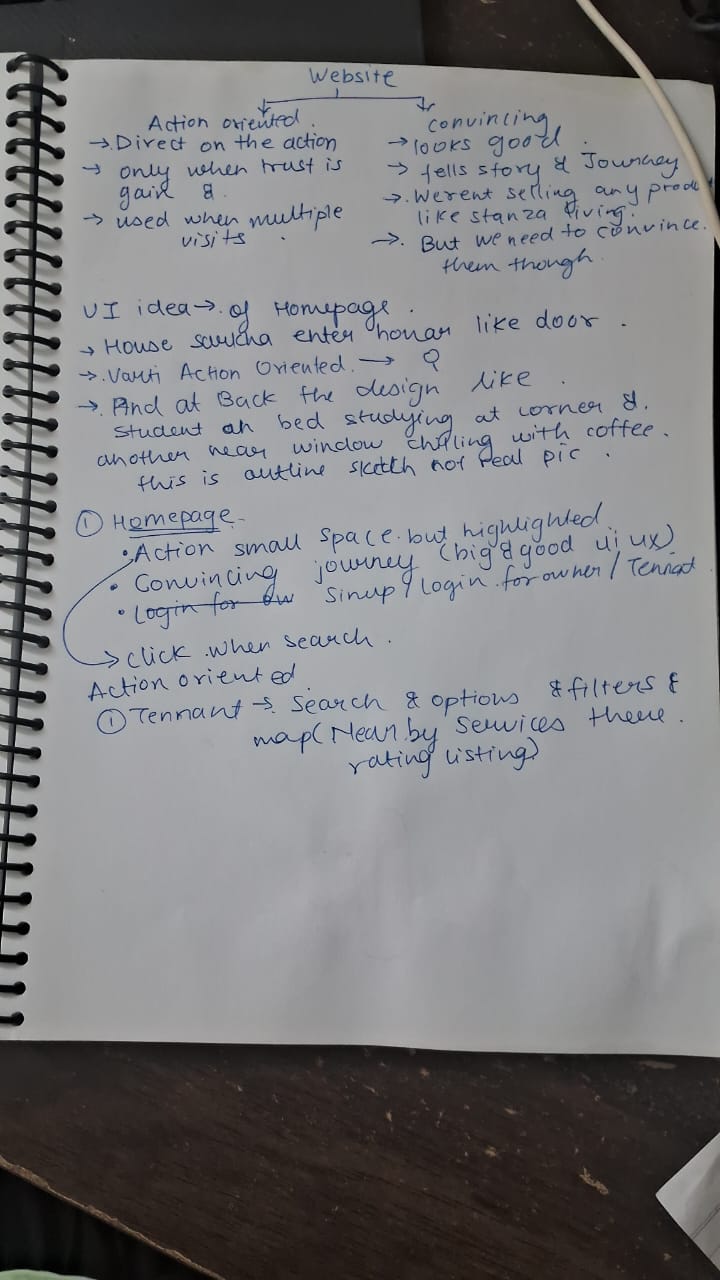 Website
Action oriented.
→ Direct on the action
→ only when trust is
gain &.
→ used when multiple
visits.
convincing
→ looks good.
→ tells story & Journey
→ Werent selling any produ
like stanza living.
→ But we need to convince.
them though.
UI idea → of Homepage.
→ House sarkha enter honar like door.
→ Varti Action Oriented. →
→ And at Back the design like.
student on bed studying at corner &.
another near window chilling with coffee.
this is outline sketch not real pic.
① Homepage
• Action small space but highlighted
• Convincing journey (big & good ui ux)
• Login for ow Sinup / Login for owner / Tennat
→ click when search.
Action oriented
① Tennant → Search & options & filters &
map (Near by Services there.
rating listing)